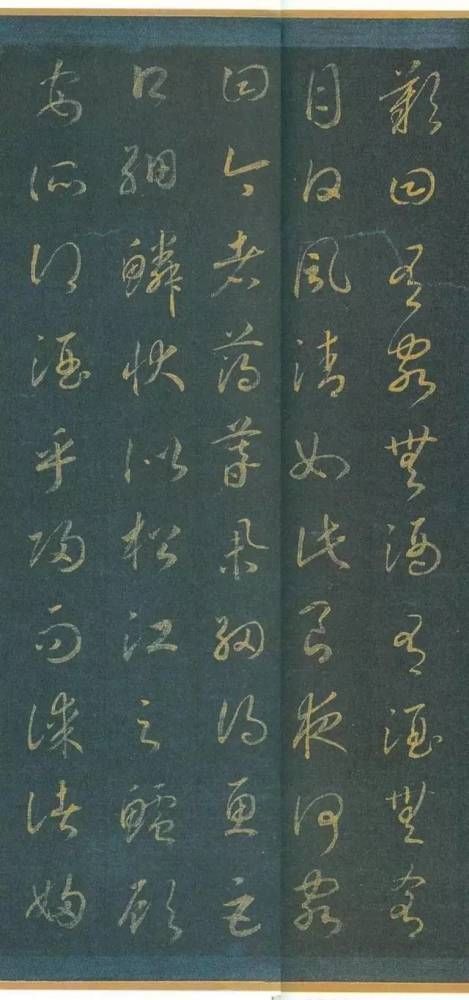 歎曰有客無酒有酒無肴
月白風清如此良夜何客
曰今者薄暮舉網得魚巨
口細鱗狀似松江之鱸顧
安所得酒乎歸而謀諸婦